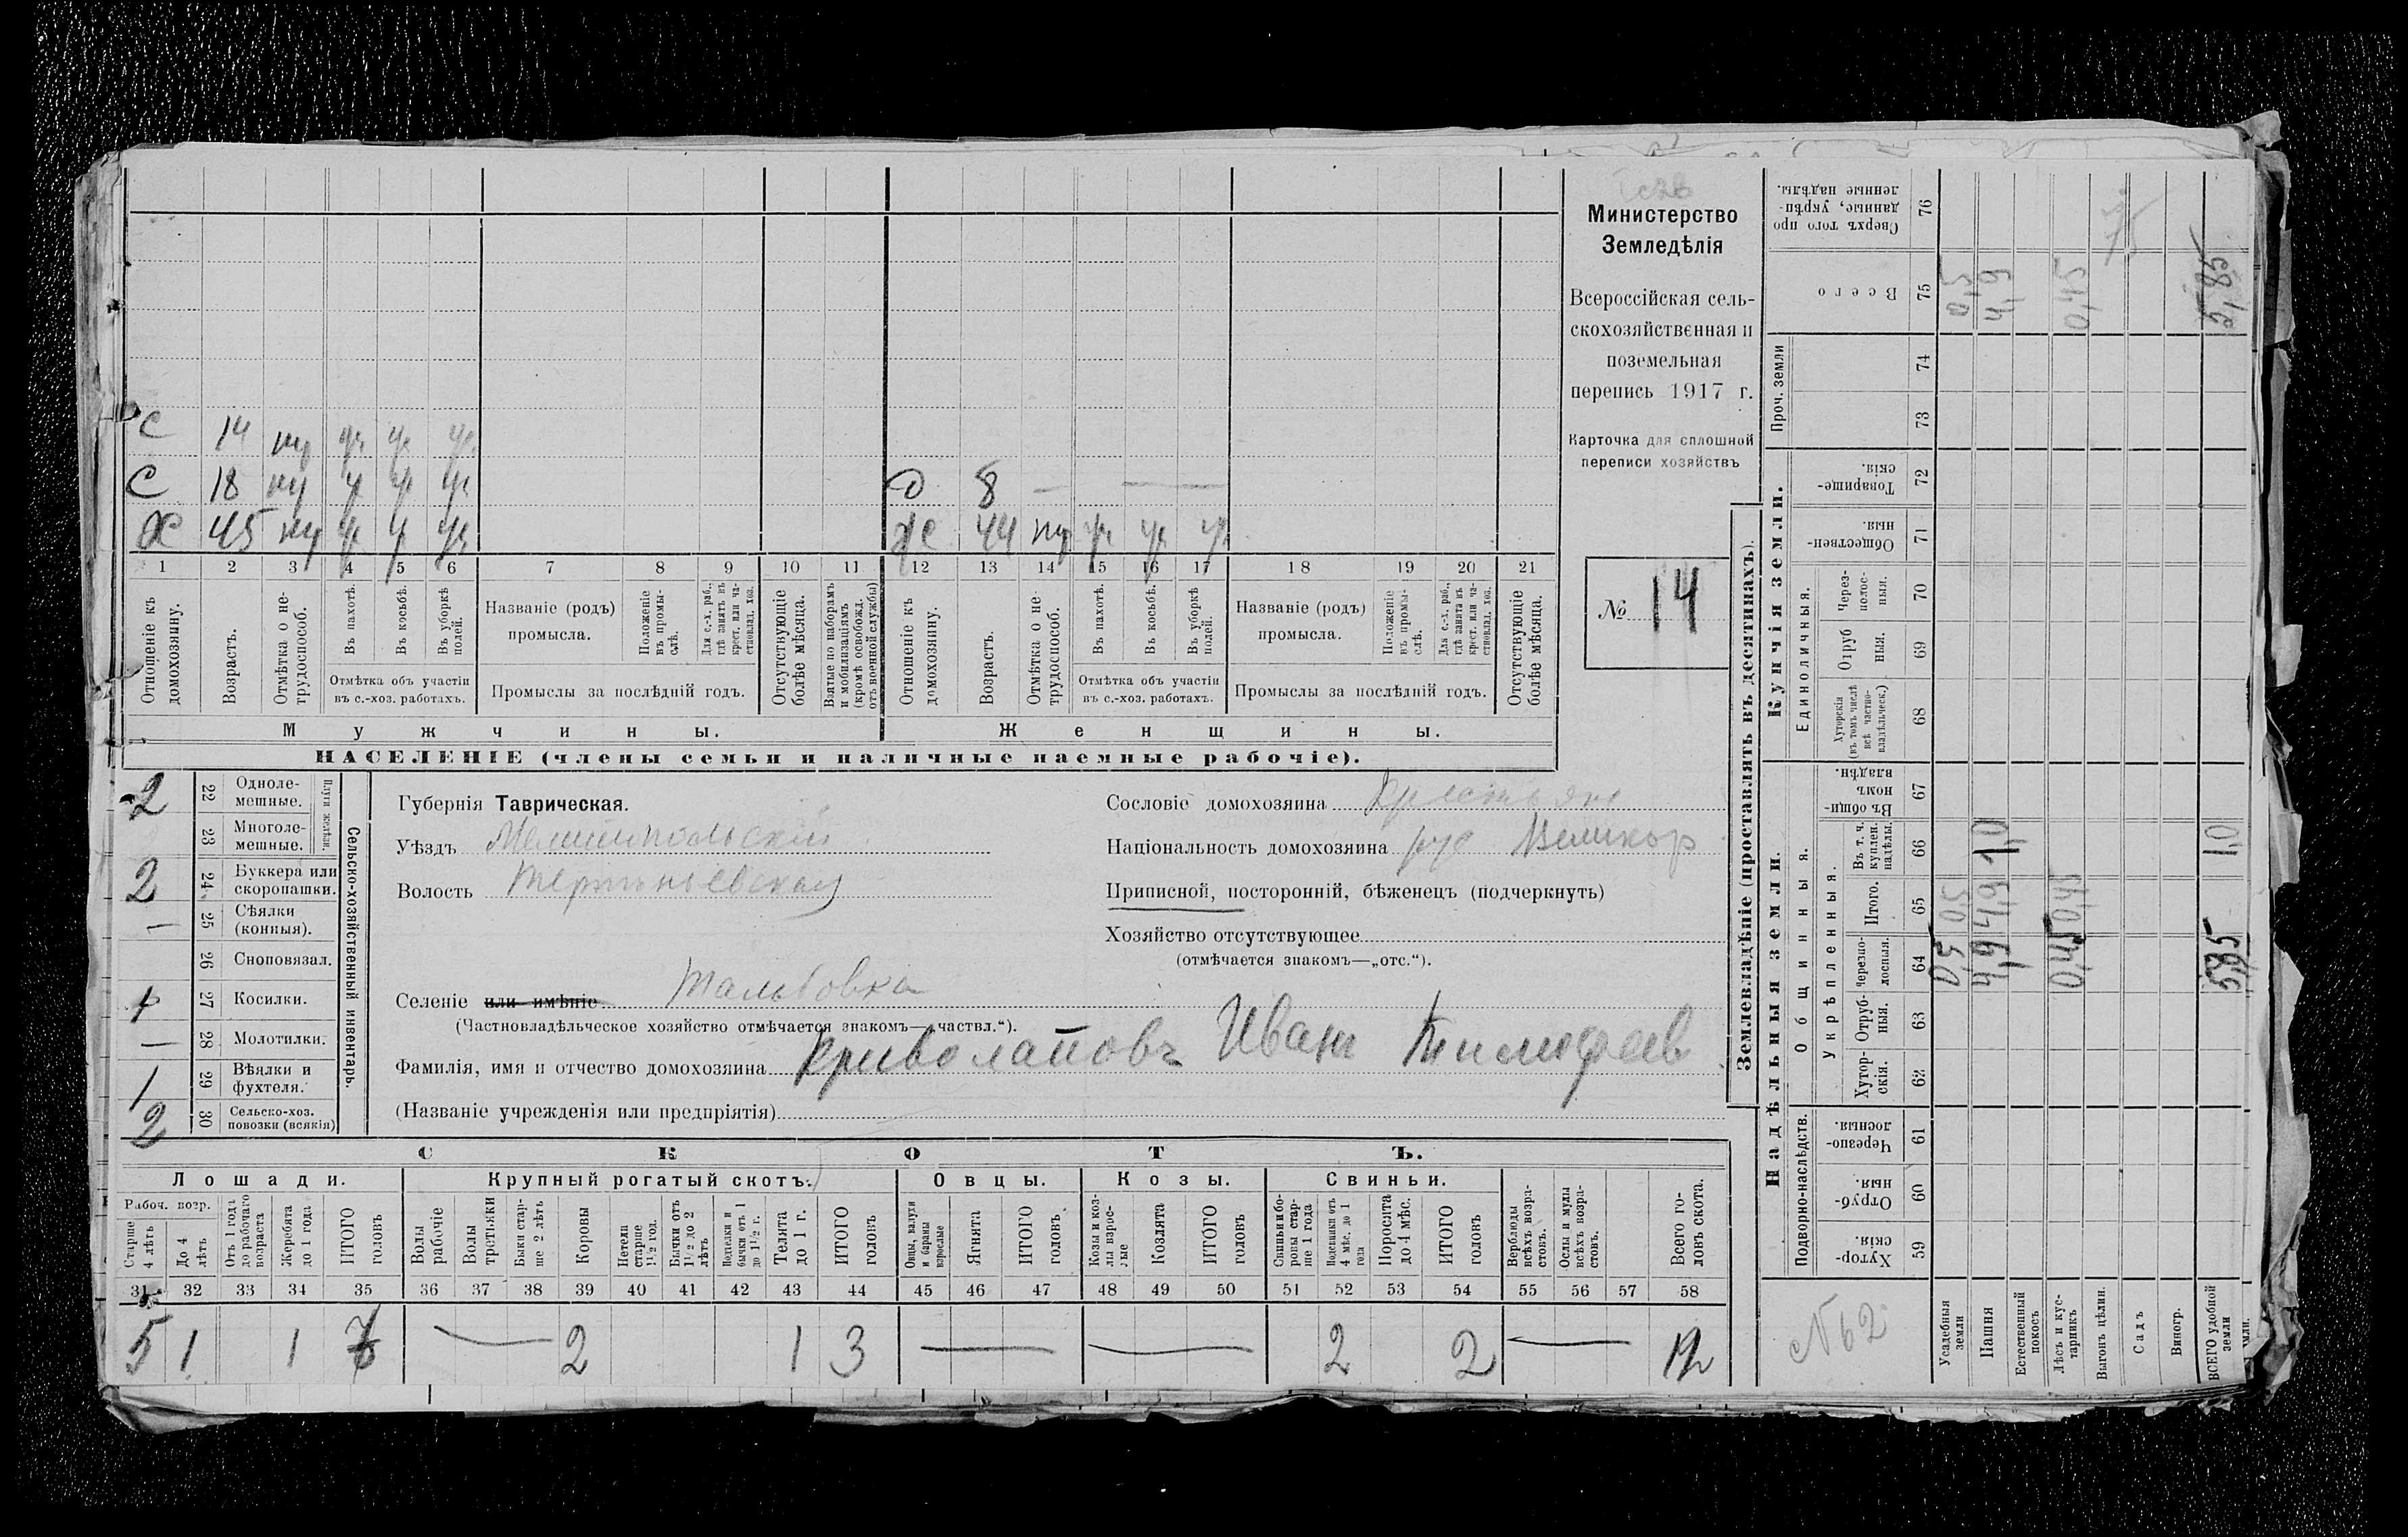 Министерство
Земледѣлія
Всероссійская сель-
скохозяйственная и
поземельная
перепись 1917 г.
Карточка для сплошной
переписи хозяйствъ
№ 14
С 14
С 18 Д 8 —
Х 45 Ж 44
1 2 3 4 5 6 7 8 9 10 11 12 13 14 15 16 17 18 19 20 21
Отношеніе къ домохозяину.
Возрастъ.
Отмѣтка о не-трудоспособ.
Въ пахотѣ.
Въ косьбѣ.
Въ уборкѣ полей.
Отмѣтка объ участіи въ с.-хоз. работахъ.
Названіе (родъ) промысла.
Положеніе въ промы-слѣ.
Для с.-х. раб., гдѣ занятъ въ крест. или ча-стновлад. хоз.
Промыслы за послѣдній годъ.
Отсутствующіе болѣе мѣсяца.
Взятые по наборамъ и мобилизаціямъ (кромѣ освобожд. отъ военной службы)
Отношеніе къ домохозяину.
Возрастъ.
Отмѣтка о не-трудоспособ.
Въ пахотѣ.
Въ косьбѣ.
Въ уборкѣ полей.
Отмѣтка объ участіи въ с.-хоз. работахъ.
Названіе (родъ) промысла.
Положеніе въ промы-слѣ.
Для с.-х. раб., гдѣ занята въ крест. или ча-стновлад. хоз.
Промыслы за послѣдній годъ.
Отсутствующіе болѣе мѣсяца.
Мужчины. Женщины.
НАСЕЛЕНІЕ (члены семьи и наличные наемные рабочіе).
Сельско-хозяйственный инвентарь.
Плуги желѣзн.
2 22 Одноле-мешные.
23 Многоле-мешные.
2 24 Буккера или скоропашки.
— 25 Сѣялки (конныя).
26 Сноповязал.
1 27 Косилки.
— 28 Молотилки.
1 29 Вѣялки и фухтеля.
2 30 Сельско-хоз. повозки (всякія)
Губернія Таврическая.
Уѣздъ Мелитопольскій
Волость
Селеніе или имѣніе
(Частновладѣльческое хозяйство отмѣчается знакомъ—„частвл.“).
Фамилія, имя и отчество домохозяина Криволаповъ Иван Тимофеев
(Названіе учрежденія или предпріятія)
Сословіе домохозяина
Національность домохозяина рус Великор
Приписной, посторонній, бѣженецъ (подчеркнуть)
Хозяйство отсутствующее
(отмѣчается знакомъ—„отс.“).
СКОТЪ.
Лошади. Крупный рогатый скотъ. Овцы. Козы. Свиньи.
Рабоч. возр.
Старше 4 лѣтъ
До 4 лѣтъ
Отъ 1 года до рабочаго возраста
Жеребята до 1 года
ИТОГО головъ
Волы рабочіе
Волы третьяки
Быки стар-ше 2 лѣтъ
Коровы
Нетели старше 1½ год.
Бычки отъ 1½ до 2 лѣтъ
Подтелки и бычки отъ 1 до 1½ г.
Телята до 1 г.
ИТОГО головъ
Овцы, валухи и бараны взрослые
Ягнята
ИТОГО головъ
Козы и коз-лы взрос-лые
Козлята
ИТОГО головъ
Свиньи и бо-ровы стар-ше 1 года
Подсвинки отъ 4 мѣс. до 1 года
Поросята до 4 мѣс.
ИТОГО головъ
Верблюды всѣхъ возра-стовъ.
Ослы и мулы всѣхъ возра-стовъ.
Всего го-ловъ скота.
31 32 33 34 35 36 37 38 39 40 41 42 43 44 45 46 47 48 49 50 51 52 53 54 55 56 57 58
5 1 1 7 — 2 1 3 — — 2 2 — 12
Землевладѣніе (проставлять въ десятинахъ).
Надѣльныя земли. Купчія земли. Проч. земли
Подворно-наслѣдств.
Общинныя.
Укрѣпленныя.
Единоличныя.
Хутор-скія. 59
Отруб-ныя. 60
Черезпо-лосныя. 61
Хутор-скія. 62
Отруб-ныя. 63
Черезпо-лосныя. 64
Итого. 65
Въ т. ч. куплен. надѣлы. 66
Въ общин-номъ владѣн. 67
Хуторскія (въ томъ числѣ всѣ частно-владѣльческ.) 68
Отруб ныя. 69
Через-полос-ныя. 70
Обществен-ныя. 71
Товарище-скія. 72
73
74
Всего 75
Сверхъ того про данные, укрѣп-ленные надѣлы. 76
Усадебныя земли 0,5 0,5 0,5
Пашня 4,9 4,9 1,0 4,9
Естественный покосъ
Лѣсъ и кус-тарникъ 0,45 0,45 0,45
Выгонъ цѣлин.
Садъ
Виногр.
ВСЕГО удобной земли 5,85 1,0 5,85
№ 62
75